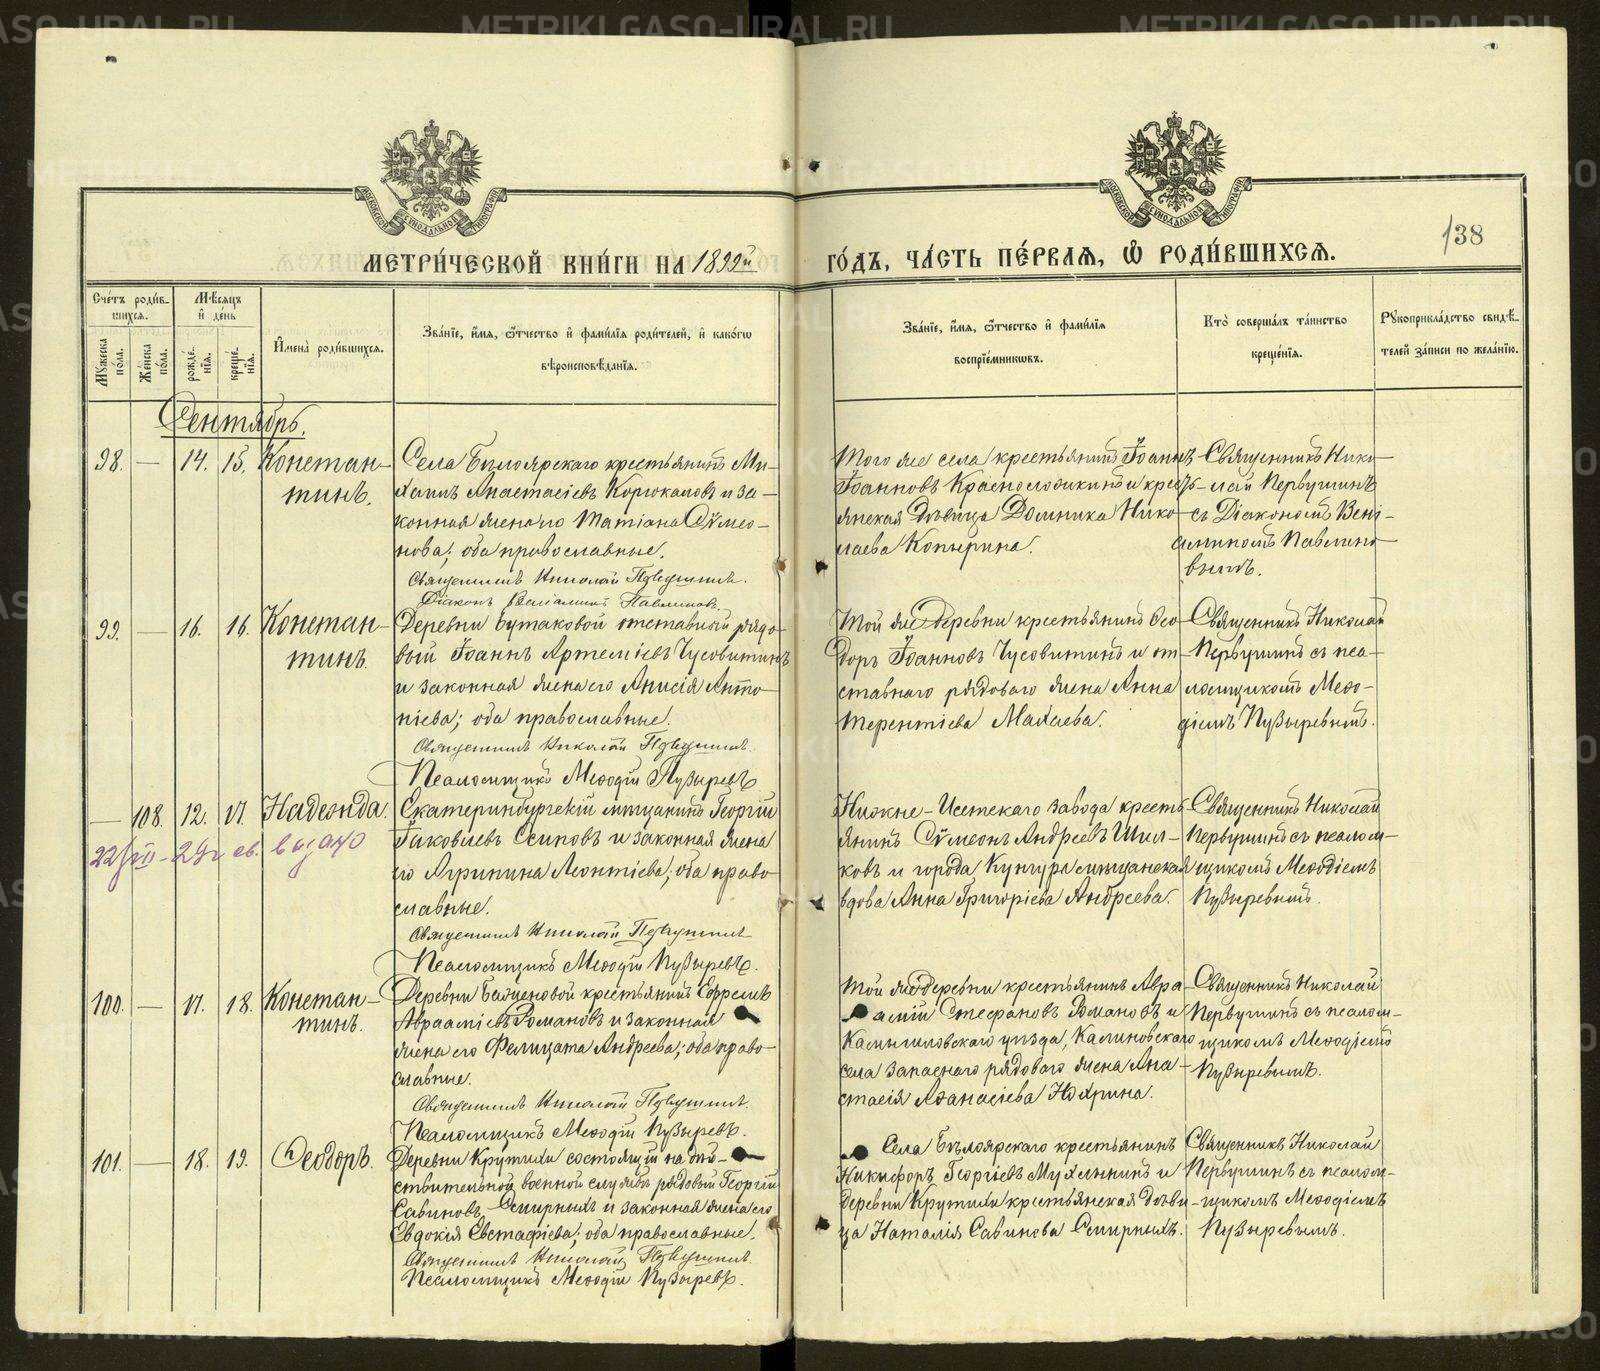 METRIKI.GASO-URAL.RU
МЕТРИ́ЧЕСКОЙ КНИ́ГИ НА 1899й
ГО́ДЪ, ЧА́СТЬ ПЕ́РВАѦ, Ѿ РОДИ́ВШИХСѦ.
138
Сче́тъ роди́в-
шихсѧ.
Мꙋ́жеска по́ла.
Же́нска по́ла.
Мѣ́сѧцъ и де́нь
рожде́нїѧ.
креще́нїѧ.
И҆мена̀ роди́вшихсѧ.
Зва́нїе, и҆́мѧ, ѻ҆́тчество и҆ фами́лїѧ роди́телей, и҆ како́гѡ
вѣроисповѣ́данїѧ.
Зва́нїе, и҆́мѧ, ѻ҆́тчество и҆ фами́лїѧ
воспрїе́мникѡвъ.
Кто̀ соверша́лъ та́инство
креще́нїѧ.
Рꙋкоприкла́дство свидѣ́-
телей за́писи по жела́нїю.
Сентябрь.
98. — 14. 15. Констан-
тинъ.
Села Бѣлоярскаго крестьянинъ Ми-
хаилъ Анастасіевъ Корюкаловъ и за-
конная жена его Татіана Сѵмео-
нова; оба православные.
Священникъ Николай Первушинъ.
Діаконъ Веніаминъ Павлиновъ.
Того же села крестьянинъ Іоаннъ
Іоанновъ Краснолобикинъ и кресть-
янская дѣвица Домника Нико-
лаева Копырина.
Священникъ Нико-
лай Первушинъ
съ Діакономъ Вені-
аминомъ Павлино-
вымъ.
99. — 16. 16. Констан-
тинъ.
Деревни Бутаковой отставный рядо-
вый Іоаннъ Артеміевъ Чусовитинъ
и законная жена его Анисія Анто-
ніева; оба православные.
Священникъ Николай Первушинъ.
Псаломщикъ Меѳодій Пузыревъ
Той же деревни крестьянинъ Ѳео-
доръ Іоанновъ Чусовитинъ и от-
ставнаго рядоваго жена Анна
Терентіева Махаева.
Священникъ Николай
Первушинъ съ пса-
ломщикомъ Меѳо-
діемъ Пузыревымъ.
— 108. 12. 17. Надежда.
22/VII - 29г св. выдано
Екатеринбургскій мѣщанинъ Георгій
Іаковлевъ Осиповъ и законная жена
его Агрипина Леонтіева; оба право-
славные.
Священникъ Николай Первушинъ
Псаломщикъ Меѳодій Пузыревъ.
Нижне-Исетскаго завода кресть-
янинъ Сѵмеонъ Андреевъ Шил-
ковъ и города Кунгура мѣщанская
вдова Анна Григоріева Андреева.
Священникъ Николай
Первушинъ съ псалом-
щикомъ Меѳодіемъ
Пузыревымъ.
100. — 17. 18. Констан-
тинъ.
Деревни Баженовой крестьянинъ Ефремъ
Авраамієвъ Романовъ и законная
жена его Фелицата Андреева; оба право-
славные.
Священникъ Николай Первушинъ.
Псаломщикъ Меѳодій Пузыревъ.
Той же деревни крестьянинъ Авра-
амій Стефановъ Романовъ и
Камышловскаго уѣзда, Калиновскаго
села запаснаго рядоваго жена Ана-
стасія Аѳанасіева Нохрина.
Священникъ Николай
Первушинъ съ псалом-
щикомъ Меѳодіемъ
Пузыревымъ.
101. — 18. 19. Ѳеодоръ.
Деревни Крутихи состоящій на дѣй-
ствительной военной службѣ рядовый Георгій
Савиновъ Смирныхъ и законная жена его
Евдокія Евстафіева; оба православные.
Священникъ Николай Первушинъ.
Псаломщикъ Меѳодій Пузыревъ.
Села Бѣлоярскаго крестьянинъ
Никифоръ Георгіевъ Мухлынинъ и
деревни Крутихи крестьянская дѣви-
ца Наталія Савинова Смирныхъ.
Священникъ Николай
Первушинъ съ псалом-
щикомъ Меѳодіемъ
Пузыревымъ.